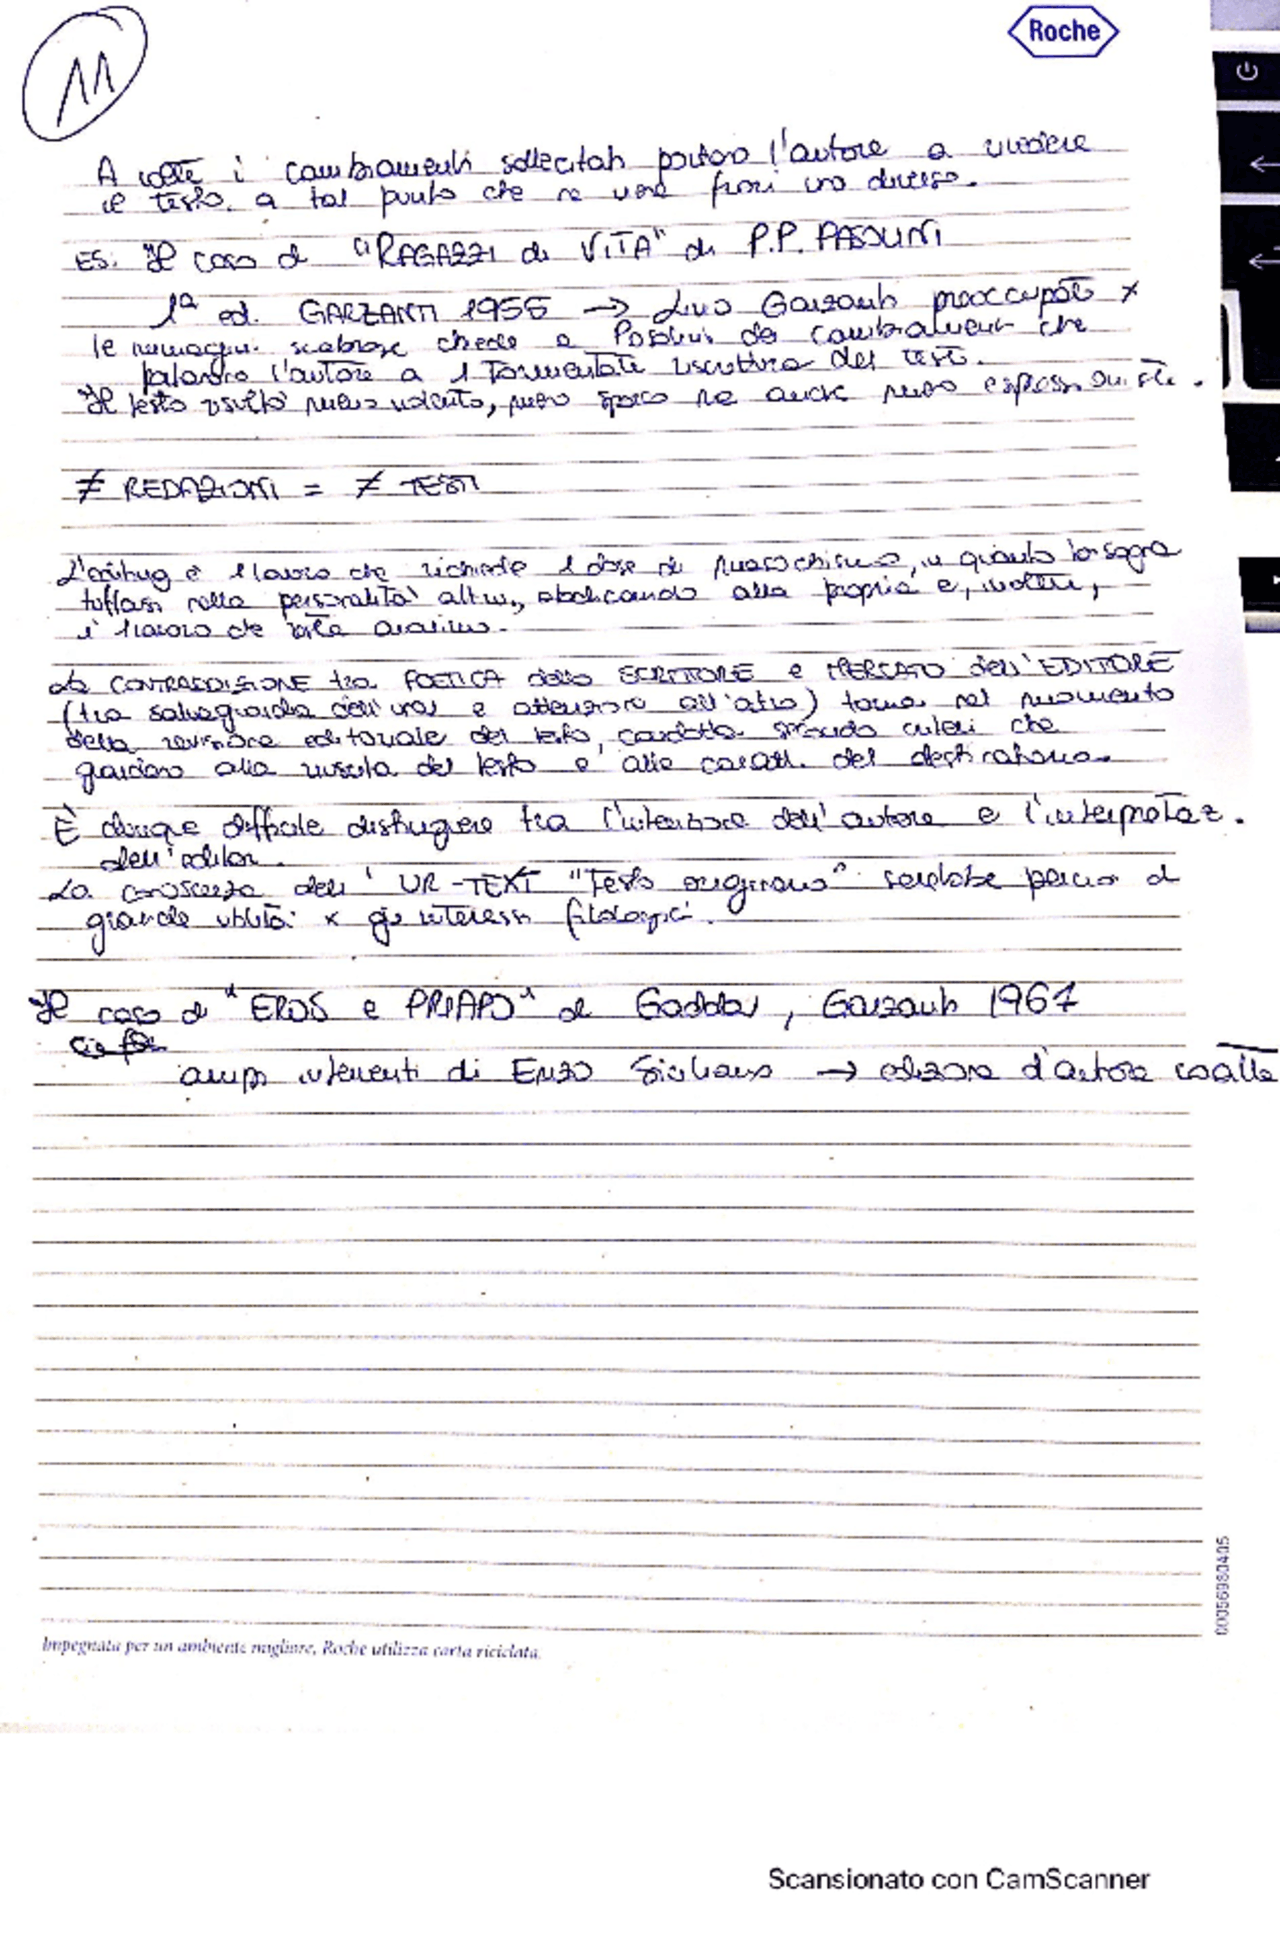 11
Roche
A volte i cambiamenti sollecitati portano l'autore a rivedere
il testo a tal punto che ne viene fuori uno diverso.
ES: Il caso di "RAGAZZI di VITA" di P.P. PASOLINI
1ª ed. GARZANTI 1955 → Livio Garzanti preoccupato x
le immagini scabrose chiede a Pasolini dei cambiamenti che
portano l'autore a 1 tormentata riscrittura del testo.
Il testo risulta meno violento, meno sporco ma anche meno espressionista.
≠ REDAZIONI = ≠ TESTI
L'editing è 1 lavoro che richiede 1 dose di masochismo, in quanto bisogna
tuffarsi nella personalità altrui, abdicando alla propria e, inoltre,
è 1 lavoro che resta anonimo.
La CONTRADDIZIONE tra POETICA dello SCRITTORE e MERCATO dell'EDITORE
(tra salvaguardia dell'una e attenzione all'altro) torna nel momento
della revisione editoriale del testo, condotta secondo criteri che
guardano alla riuscita del testo e alle caratt. del destinatario.
È dunque difficile distinguere tra l'intenzione dell'autore e l'interpretaz.
dell'editor.
La conoscenza dell' UR-TEXT "Testo originario" sarebbe perciò di
grande utilità x gli interessi filologici.
Il caso di "EROS e PRIAPO" di Gadda, Garzanti 1967
ampi interventi di Enzo Siciliano → edizione d'autore coatta
Impegnata per un ambiente migliore, Roche utilizza carta riciclata.
00056980405
Scansionato con CamScanner